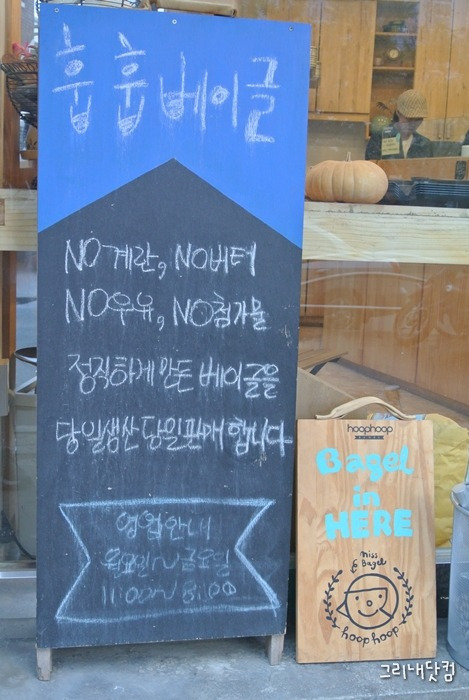 훕훕베이글
NO계란, NO버터
NO우유, NO첨가물
정직하게 만든 베이글을
당일생산 당일판매 합니다
영업안내
월요일~금요일
11:00~ 8:00
hoophoop
Bagel
in
HERE
miss
& Bagel
hoop hoop
그리내닷컴